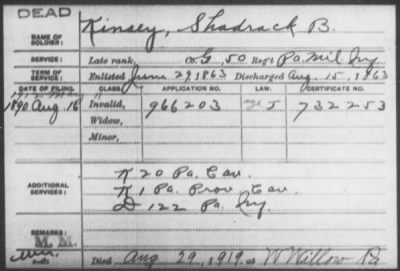 DEAD
NAME OF SOLDIER: Kinsey, Shadrack B.
SERVICE: Late rank, Co. G, 50 Reg't Pa. Mil. Inf.
TERM OF SERVICE: Enlisted June 29 1863 Discharged Aug. 15, 1863
DATE OF FILING. CLASS. APPLICATION NO. LAW. CERTIFICATE NO.
1890 Aug. 16 Invalid, 966203 J 732253
Widow,
Minor,
ADDITIONAL SERVICES: K 20 Pa. Cav.
K 1 Pa. Prov. Cav.
D 122 Pa. Inf.
REMARKS:
M. M.
Died Aug 29, 1919 at W Willow Pa